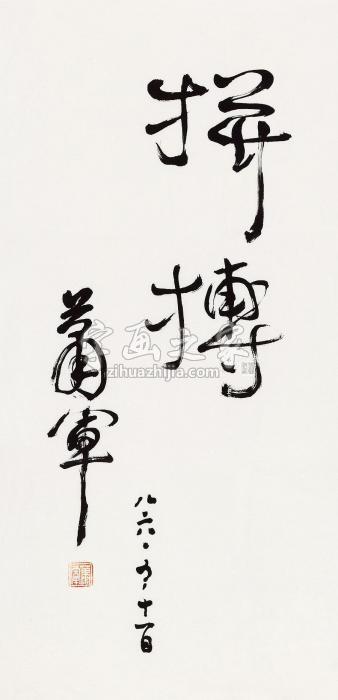 拼搏
萧军
八六·五·十一日
字画之家
zihuazhijia.com